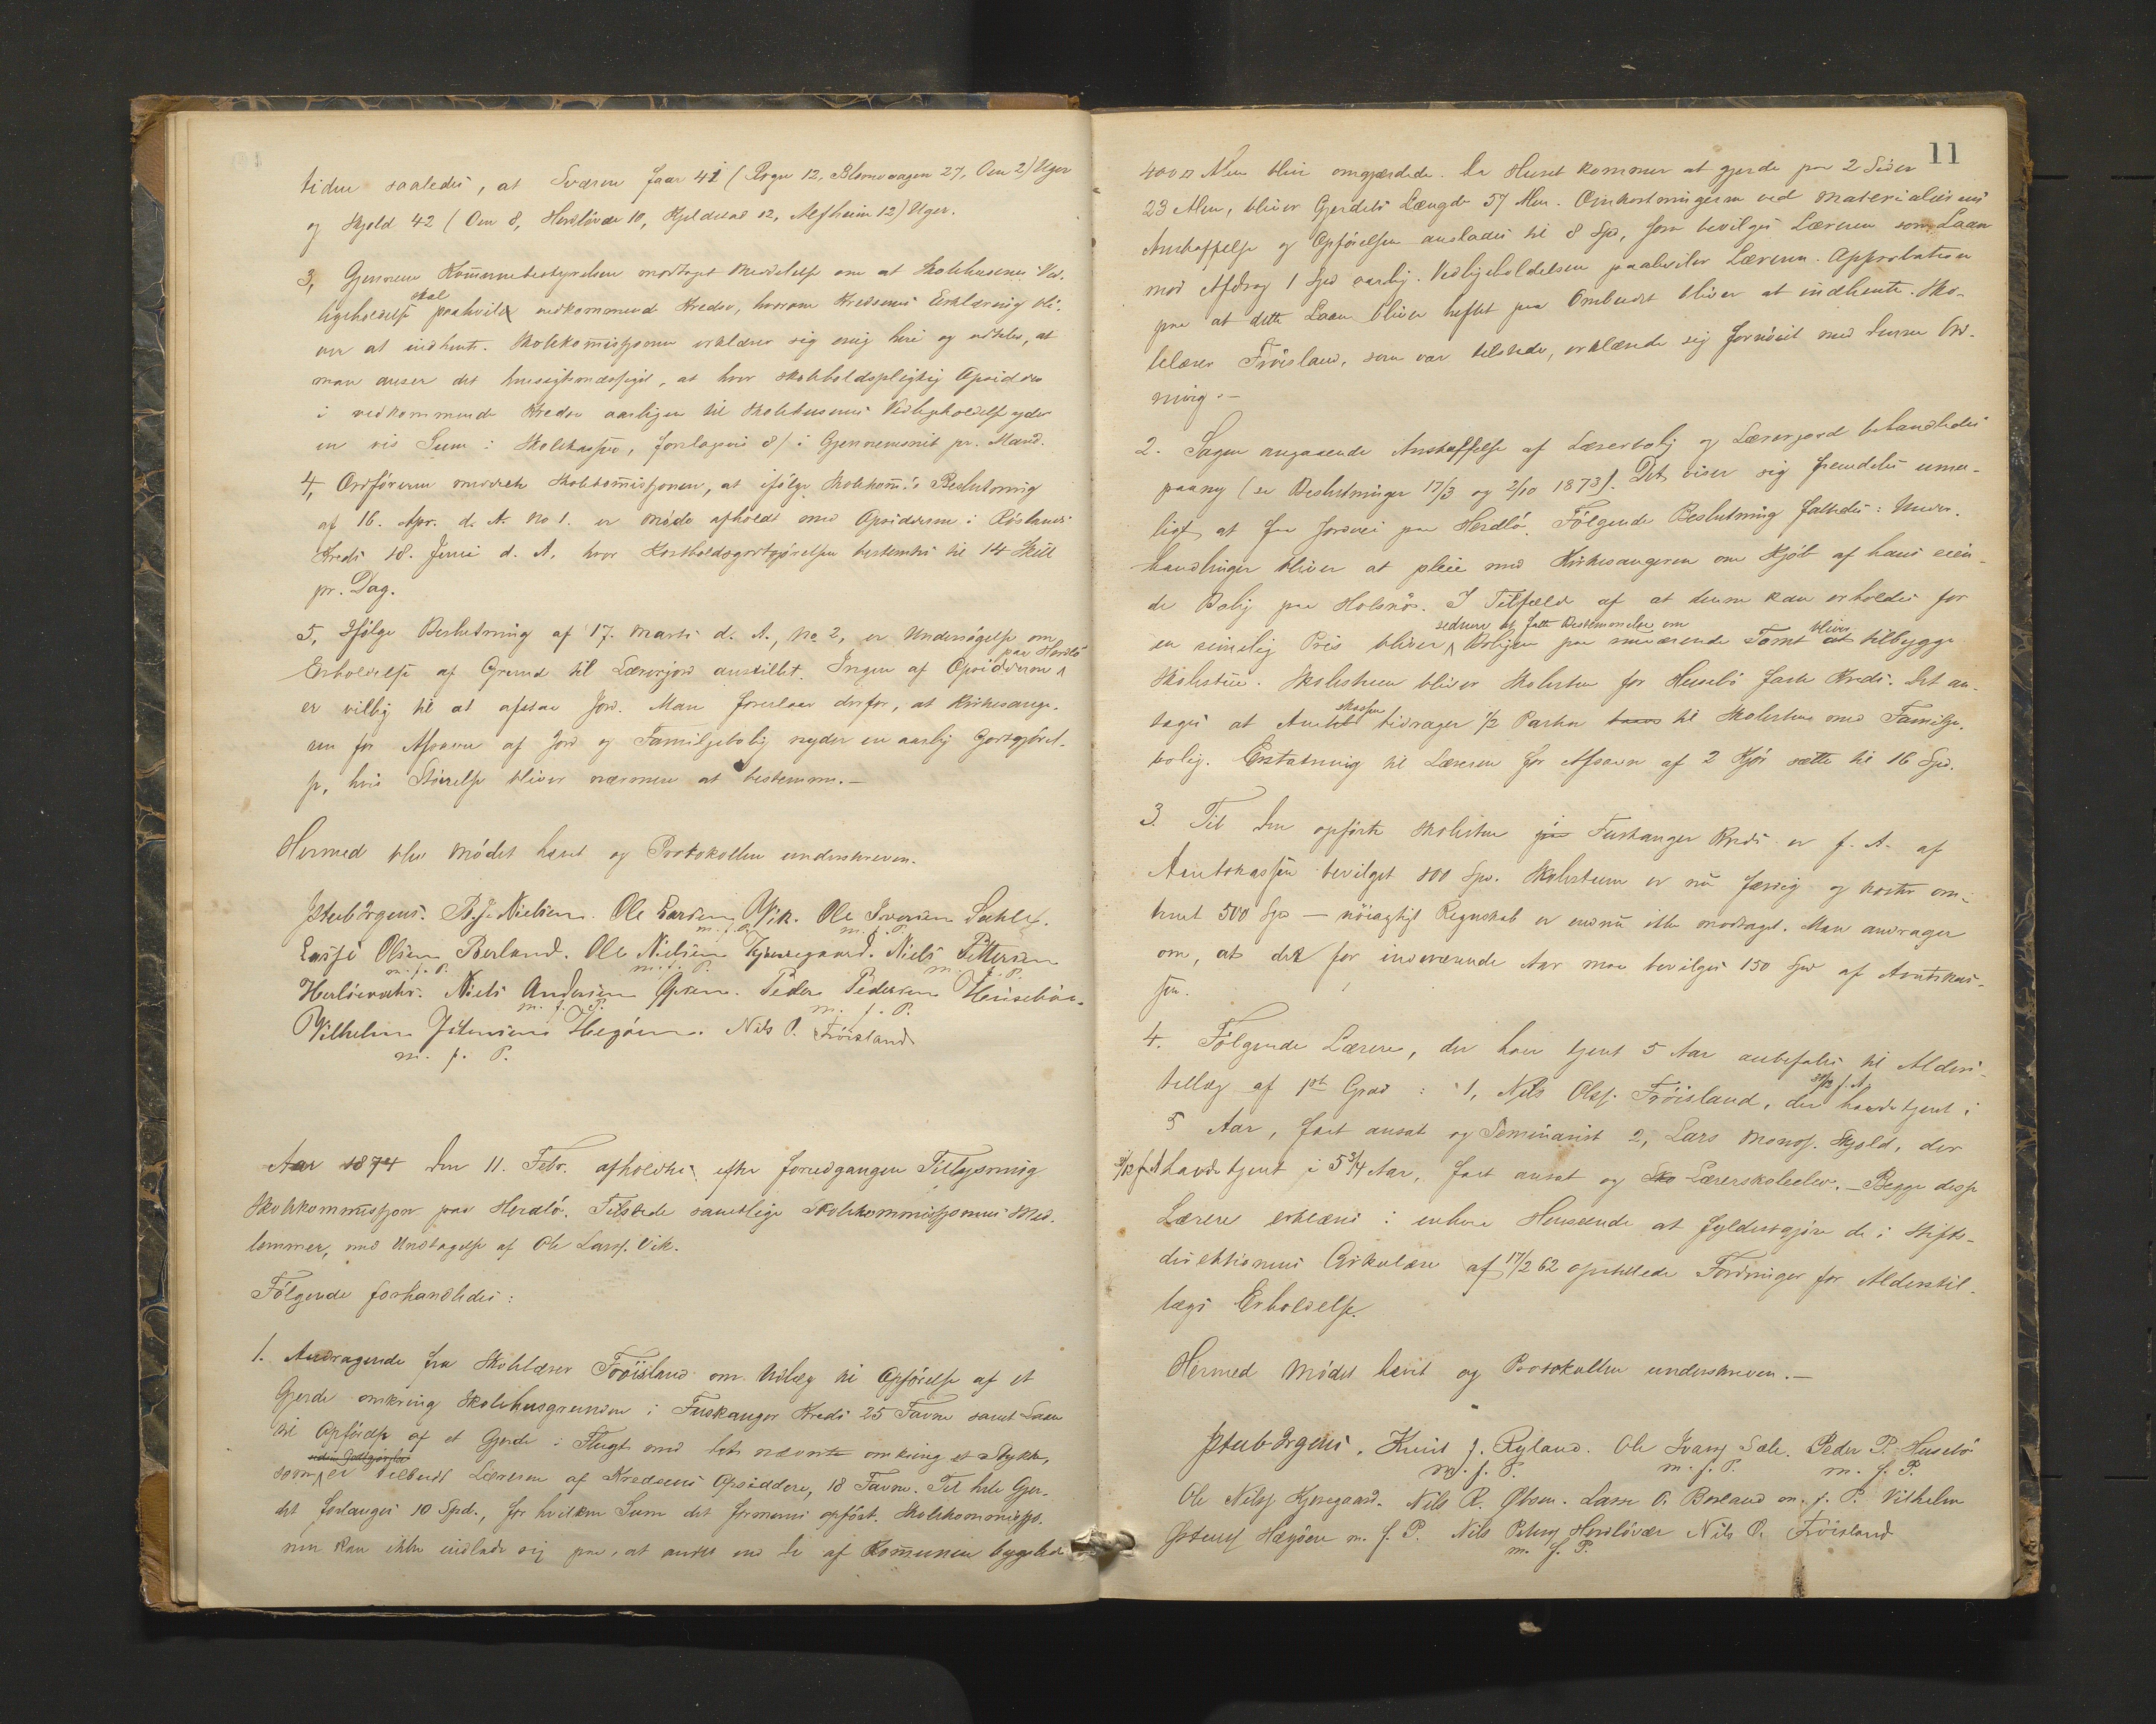 tiden saaledes, at Sværen faar 41 (Rogn 12, Blomvaagen 27, Oen 2) Uger
og Skjold 42 (Oen 8, Herdlöver 10, Kjeldstad 12, Alfheim 12) Uger.
3, Gjennem Kommunebestyrelsen modtaget Meddelelse om at Skolehusenes Ved-
ligeholdelse skal paahvile vedkommende Kredse, hvorom Kredsenes Erklæring bli-
ver at indhente. Skolekommissjonen erklærer sig enig heri og udtaler, at
man anser det hensigtsmæssigst, at hver skoleholdspligtig Opsidder
i vedkommende Kredse aarligen til Skolehusenes Vedligeholdelse yder
en vis Sum i Skolekassen, forslagsvis 8/ i Gjennemsnit pr. Mand.
4, Ordföreren meddelte Skolekommissjonen, at ifölge Skolekom:s Beslutning
af 16. Apr. d. A. No 1. er Möde afholdt med Opsidderne i Röslands
Kreds 18. Juni d. A, hvor Kostholdsgodtgjörelsen bestemtes til 14 Skill
pr. Dag.
5, Ifölge Beslutning af 17. Marts d. A., No 2, er Undersögelse om
Erholdelse af Grund til Lærerjord anstillet. Ingen af Opsidderne paa Herdlö
er villig til at afstaa Jord. Man foreslaar derfor, at Kirkesange-
ren for Afsavn af Jord og Familjebolig nyder en aarlig Godtgjörel-
se, hvis Störrelse bliver nærmere at bestemme.—
Hermed blev Mödet hævet og Protokollen underskreven.
JStub Irgens. B. J. Nielsen. Ole Larsen Vik. Ole Iversen Sæhle.
m. f. P. m. f. P.
Lasse Olsen Berland. Ole Nielsen Kjæregaard. Niels Pettersen
m. f. P. m. f. P. m. f. P.
Herlöevær. Niels Andersen Opsen. Peder Pedersen Huseböe.
m. f. P. m. f. P.
Vilhelm Jstensen Hegöen. Nils O. Fröisland
m. f. P.
Aar 1874 den 11. Febr. afholdtes efter foregangen Tillysning
Skolekommissjon paa Herdlö. Tilstede samtlige Skolekommissjonens Med-
lemmer, med Undtagelse af Ole Larss. Vik.
Fölgende forhandledes:
1. Andragende fra Skolelærer Fröisland om Udlæg til Opförelse af et
Gjerde omkring Skolehusgrunden i Fuskanger Kreds 25 Favne samt Laan
til Opförelse af et Gjerde i Flugt med det nævnte omkring et Stykke,
som er tilbudt Læreren af Kredsens Opsiddere, 18 Favne. Til hele Gjer-
det forlanges 10 Spd., for hvilken Sum det formenes opfört. Skolekommissjo-
nen kan ikke indlade sig paa, at andet end de af Kommunen bygslede
11
400 □ Alen blir omgjærdede. Da Huset kommer at gjerde paa 2 Sider
23 Alen, bliver Gjerdets Længde 57 Alen. Omkostningerne ved Materialiernes
Anskaffelse og Opförelsen ansloges til 8 Spd, som bevilges Læreren som Laan
mod Afdrag 1 Spd aarlig. Vedligeholdelsen paahviler Læreren. Approbation
paa at dette Laan bliver heftet paa Ombudet bliver at indhente. Sko-
lelærer Fröisland, som var tilstede, erklærede sig fornöiet med denne Ord-
ning.—
2. Sagen angaaende Anskaffelse af Lærerbolig og Lærerjord behandledes
paany (se Beslutninger 17/3 og 2/10 1873). Det viser sig fremdeles umu-
ligt at faa Jordvei paa Herdlö. Fölgende Beslutning fattedes: Under-
handlinger bliver at pleie med Kirkesangeren om Kjöb af hans eien-
de Bolig paa Holsnös. I Tilfælde af at denne kan erholdes for
en rimelig Pris bliver sednere at fatte Bestemmelse om Boligen paa nuværende Tomt bliver at tilbygge
Skolestue. Skolestuen bliver Skolestue for Husebö faste Kreds. Det an-
tages at Amtskassen bidrager 1/2 Parten til Skolestue med Familje-
bolig. Erstatning til Læreren for Afsavn af 2 Kjör sættes til 16 Spd.
3. Til den opförte Skolestue i Fuskanger Kreds er f. A. af
Amtskassen bevilget 100 Spd. Skolestuen er nu færdig og koster om-
trent 500 Spd — nöiagtigt Regnskab er endnu ikke modtaget. Man andrager
om, at der for indeværende Aar maa bevilges 150 Spd af Amtskas-
sen.
4. Fölgende Lærere, der har tjent 5 Aar anbefales til Alders-
tillæg af 1ste Grad: 1, Nils Olss. Fröisland, der 31/12 f. A. havde tjent i
5 Aar, fast ansat og Seminarist 2, Lars Monss. Skjold, der
31/12 f. A havde tjent i 5 3/4 Aar, fast ansat og Lærerskoleelev.— Begge disse
Lærere erklæres i enhver Henseende at fyldestgjöre de i Stifts-
direktionens Cirkulære af 17/2 62 opstillede Fordringer for Alderstil-
lægs Erholdelse.
Hermed Mödet hævet og Protokollen underskreven.—
JStub Irgens. Knud J. Ryland. Ole Ivarss Sæle. Peder P. Husebö
m. f. P. m. f. P. m. f. P.
Ole Nilss Kjæregaard. Nils R. Obsen. Lasse O. Berland m. f. P. Vilhelm
Jstenss Hægöen m. f. P. Nils Peterss Herdlövær Nils O. Fröisland
m. f. P.